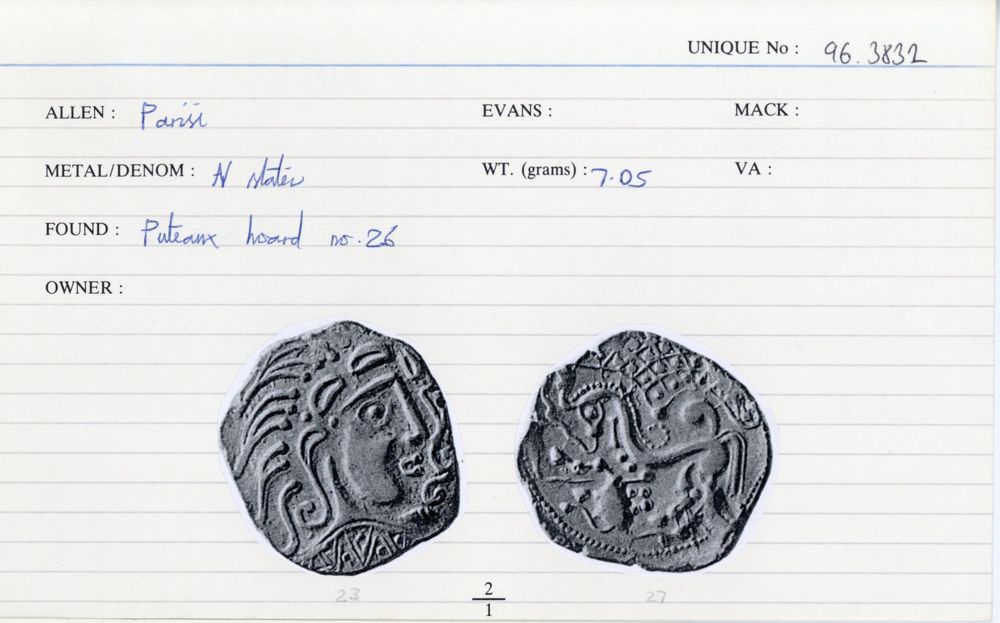 UNIQUE No : 96.3832
ALLEN : Parisii EVANS : MACK :
METAL/DENOM : N stater WT. (grams) : 7.05 VA :
FOUND : Puteaux hoard no. 26
OWNER :
23 2/1 27